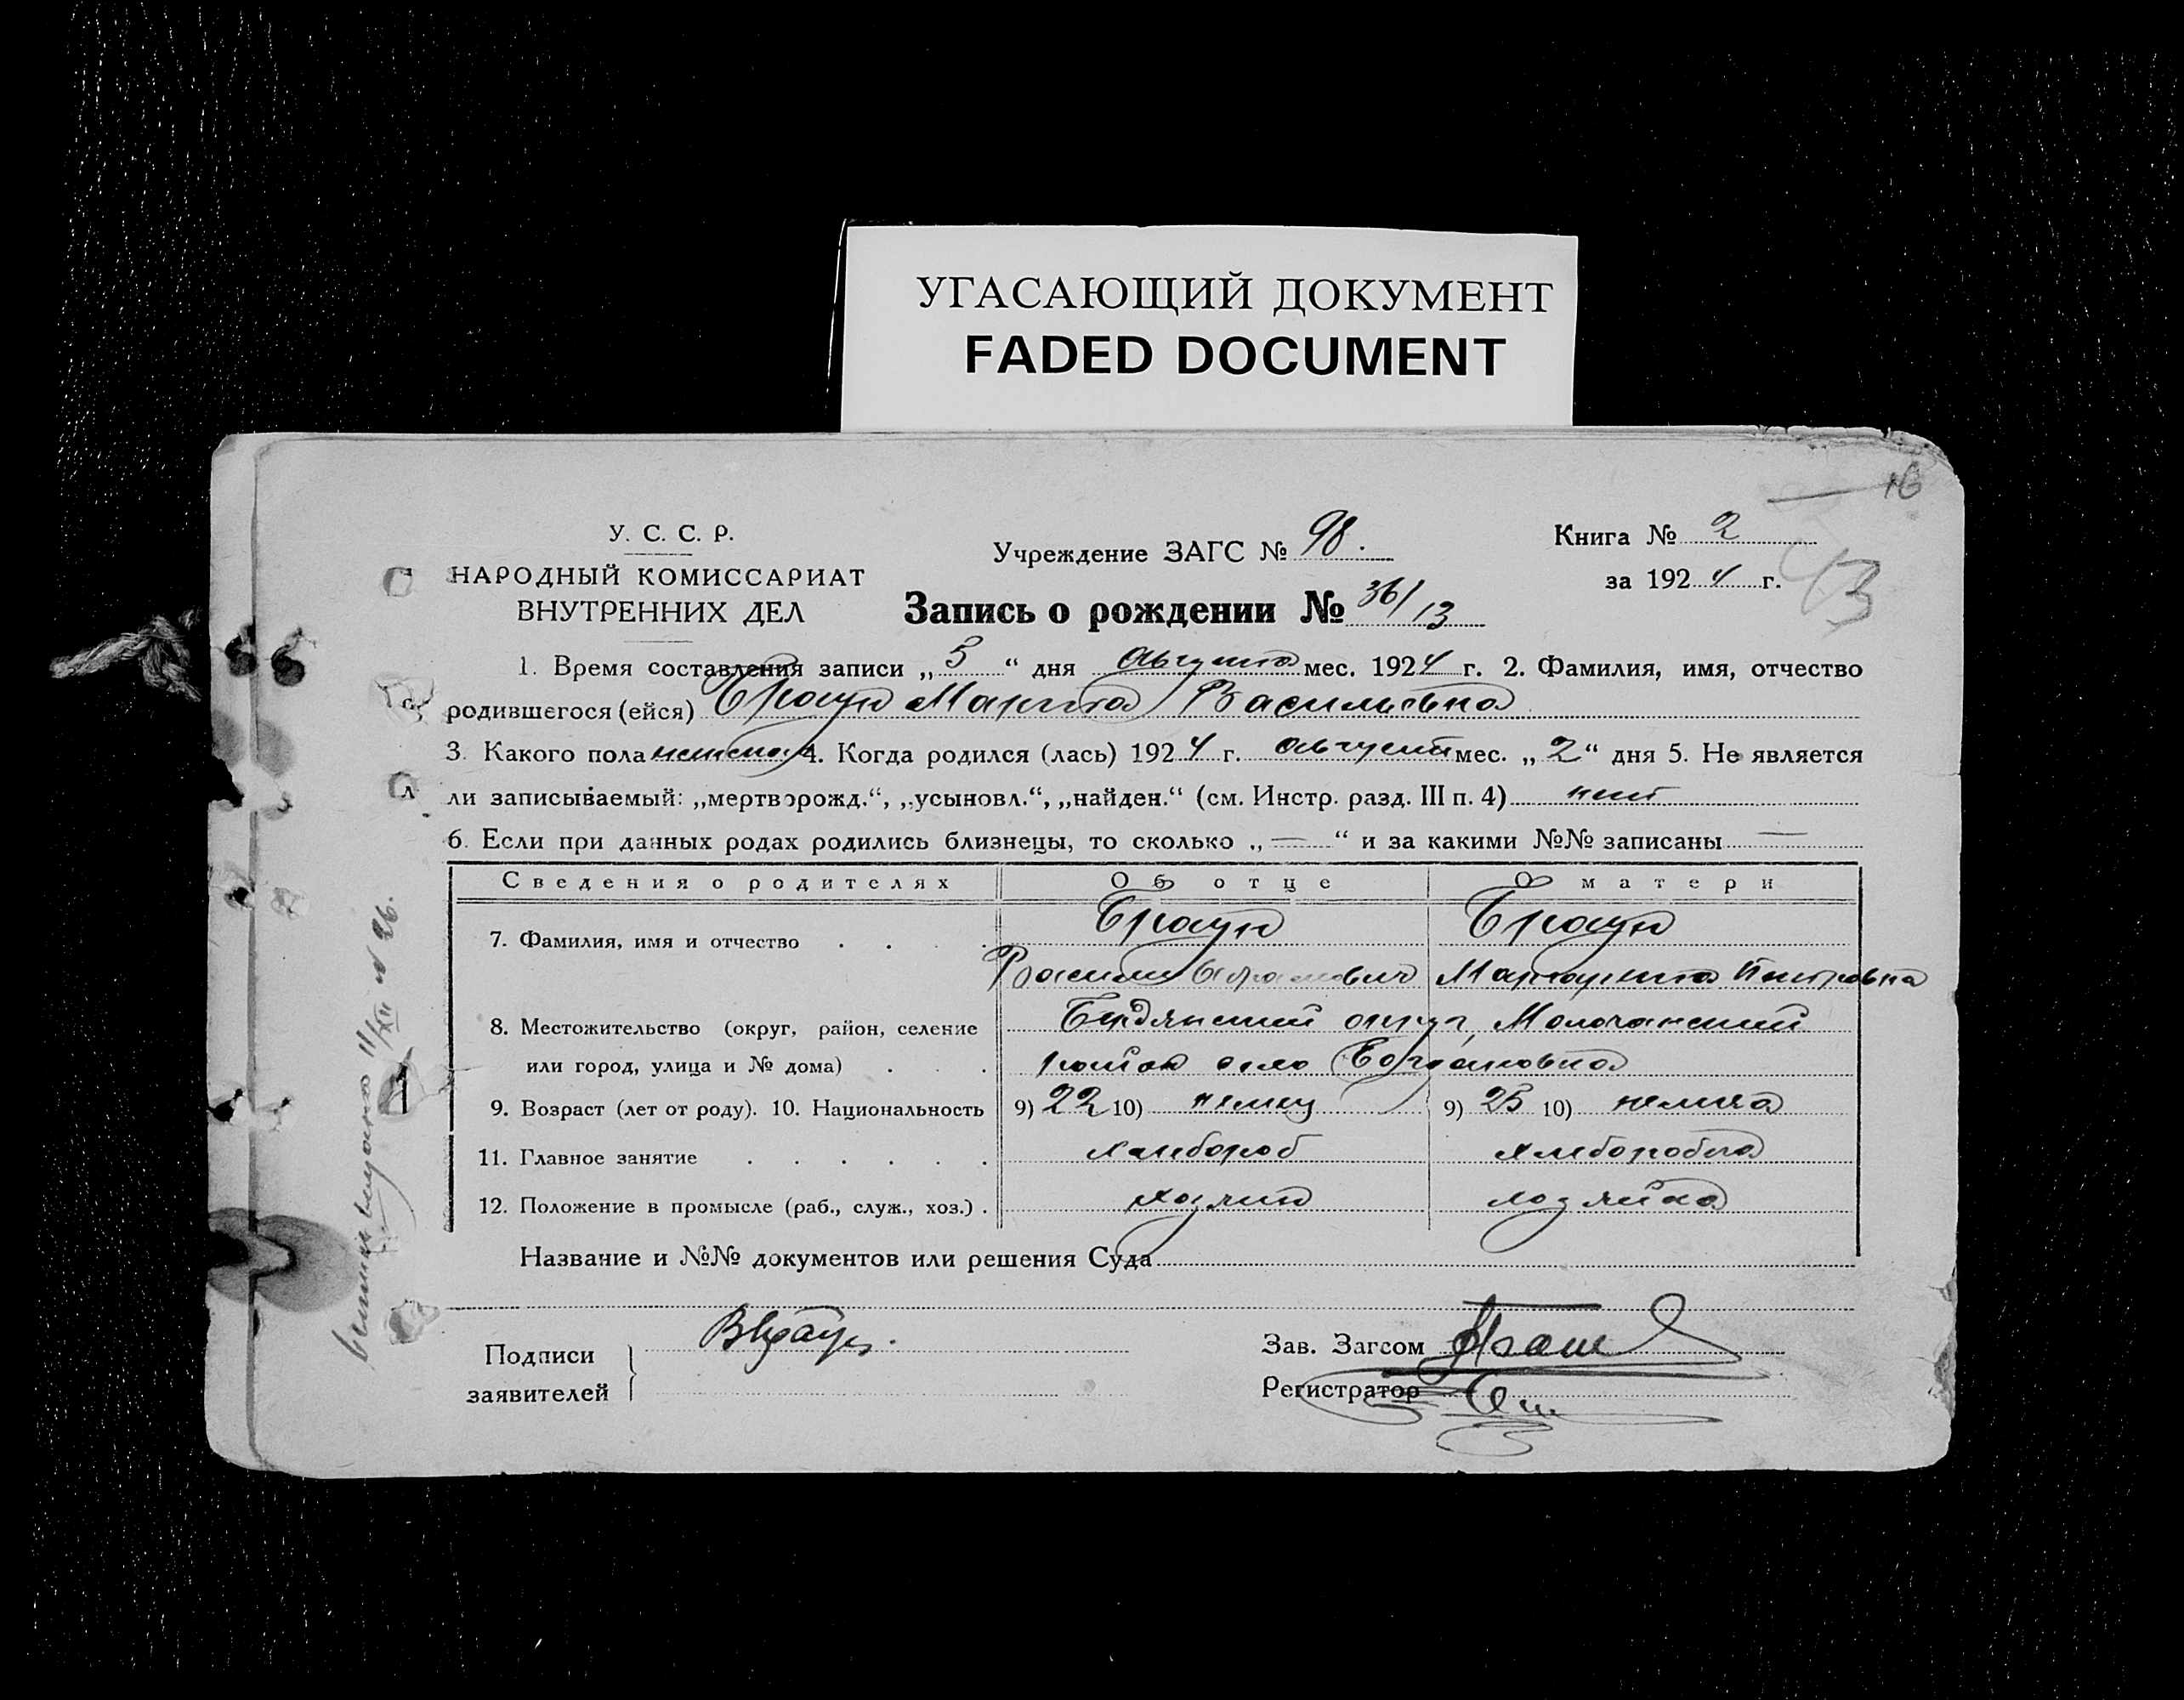 УГАСАЮЩИЙ ДОКУМЕНТ
FADED DOCUMENT
16
У. С. С. Р.
НАРОДНЫЙ КОМИССАРИАТ
ВНУТРЕННИХ ДЕЛ
Учреждение ЗАГС № 98.
Книга № 2
за 1924 г.
13
Запись о рождении № 36/13
1. Время составления записи „5“ дня Августа мес. 1924 г. 2. Фамилия, имя, отчество
родившегося (ейся) Браун Марта Васильевна
3. Какого пола женска. 4. Когда родился (лась) 1924 г. август мес. „2“ дня 5. Не является
ли записываемый: „мертворожд.“, „усыновл.“, „найден.“ (см. Инстр. разд. III п. 4) нет
6. Если при данных родах родились близнецы, то сколько „—“ и за какими №№ записаны —
Сведения о родителях Об отце О матери
7. Фамилия, имя и отчество Браун Браун
Васили Маргарита Петровна
8. Местожительство (округ, район, селение Бердянский округ, Молочанский
или город, улица и № дома) район село Богдановка
9. Возраст (лет от роду). 10. Национальность 9) 22 10) немец 9) 25 10) немка
11. Главное занятие хлебороб хлеборобка
12. Положение в промысле (раб., служ., хоз.) хозяин хозяйка
Название и №№ документов или решения Суда
Подписи
заявителей
ВБраун.
Зав. Загсом
Регистратор
11/XII 26.
1